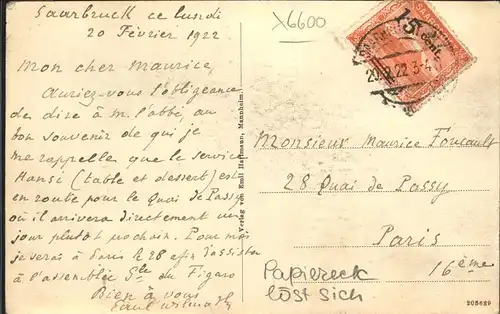 Saarbruck ce lundi
20 Février 1922
Mon cher Maurice,
Auriez-vous l'obligeance
de dire à M. l'abbé, au
bon souvenir de qui je
me rappelle que le service
Hansi (table et dessert) est
en route pour le Quai de Passy
où il arrivera directement un
jour plutôt prochain. Pour moi
je serai à Paris le 28 afin d'assister
à l'assemblée Gle du Figaro
Bien à vous
Paul
X6600
15 Cent.
22 3-4
Verlag von Emil Hartmann, Mannheim.
Monsieur Maurice Foucault
28 Quai de Passy
Paris
16ème
Papiereck
löst sich
205629